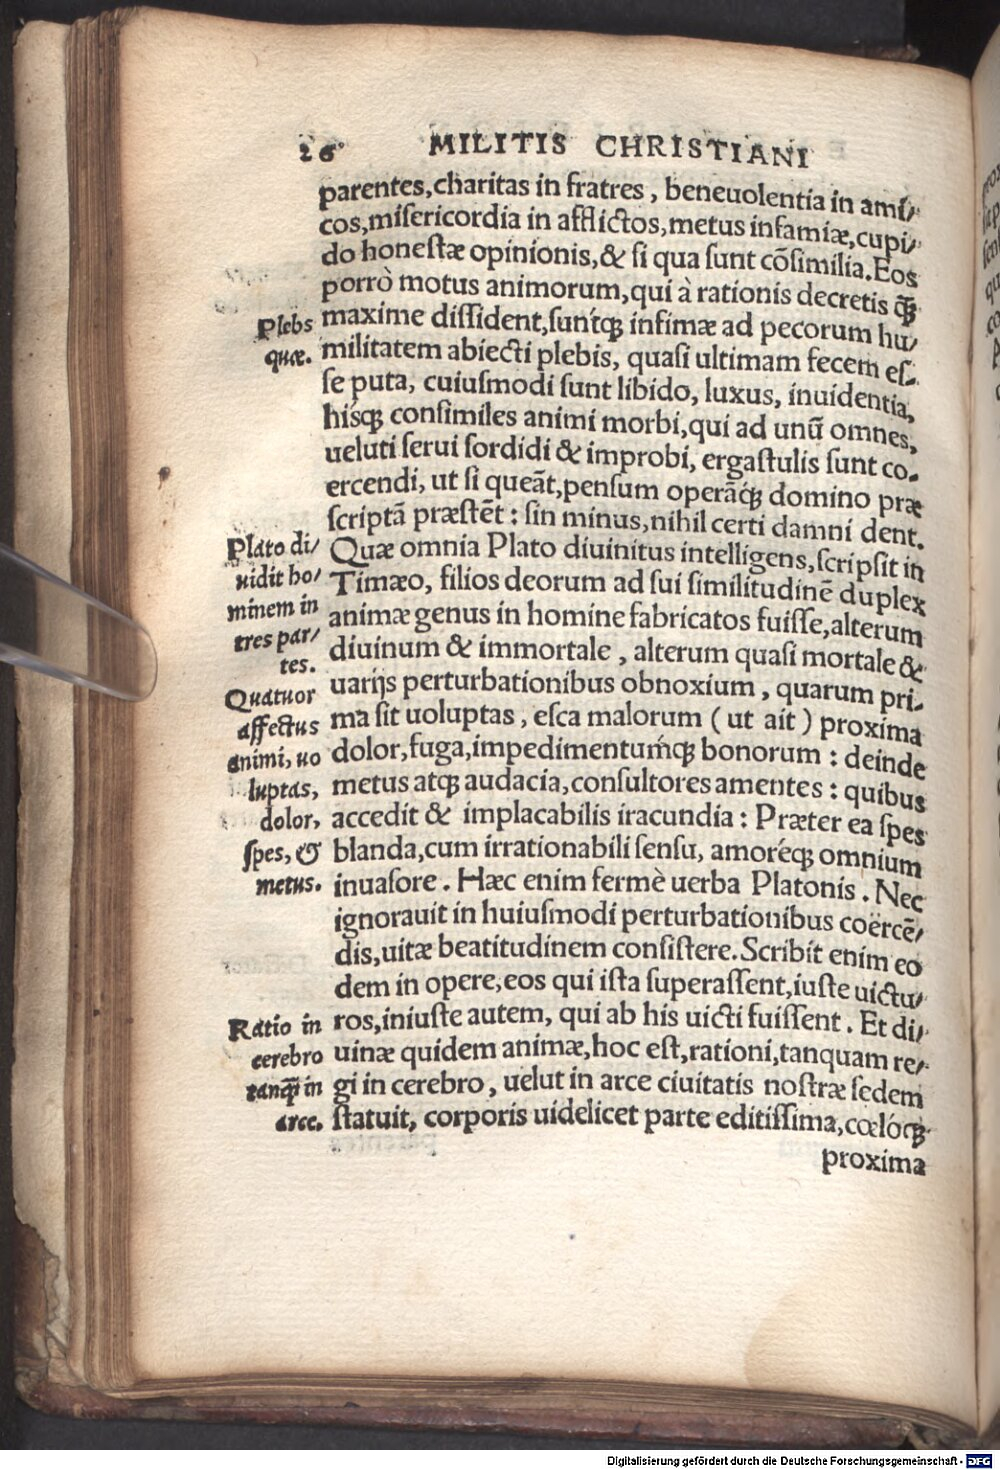 26 MILITIS CHRISTIANI
parentes, charitas in fratres, beneuolentia in ami⸗
cos, misericordia in afflictos, metus infamiæ, cupi⸗
do honestæ opinionis, & si qua sunt cõsimilia. Eos
porrò motus animorum, qui à rationis decretis q̃ꝫ
maxime dissident, suntꝙ infimæ ad pecorum hu⸗
militatem abiecti plebis, quasi ultimam fecem es⸗
se puta, cuiusmodi sunt libido, luxus, inuidentia,
hisꝙ consimiles animi morbi, qui ad unũ omnes,
ueluti serui sordidi & improbi, ergastulis sunt co⸗
ercendi, ut si queãt, pensum operãꝙ domino præ
scriptã præstẽt: sin minus, nihil certi damni dent.
Quæ omnia Plato diuinitus intelligens, scripsit in
Timæo, filios deorum ad sui similitudinẽ duplex
animæ genus in homine fabricatos fuisse, alterum
diuinum & immortale, alterum quasi mortale &
uarijs perturbationibus obnoxium, quarum pri⸗
ma sit uoluptas, esca malorum (ut ait) proxima
dolor, fuga, impedimentumꝙ bonorum: deinde
metus atꝙ audacia, consultores amentes: quibus
accedit & implacabilis iracundia: Præter ea spes
blanda, cum irrationabili sensu, amoréꝙ omnium
inuasore. Hæc enim fermè uerba Platonis. Nec
ignorauit in huiusmodi perturbationibus coërcẽ⸗
dis, uitæ beatitudinem consistere. Scribit enim eo
dem in opere, eos qui ista superassent, iuste uictu⸗
ros, iniuste autem, qui ab his uicti fuissent. Et di⸗
uinæ quidem animæ, hoc est, rationi, tanquam re⸗
gi in cerebro, uelut in arce ciuitatis nostræ sedem
statuit, corporis uidelicet parte editissima, cœlóꝙ
proxima
Plebs
quæ.
Plato di⸗
uidit ho⸗
minem in
tres par⸗
tes.
Quatuor
affectus
animi, uo
luptas,
dolor,
spes, &
metus.
Ratio in
cerebro
tanq̃ in
arce.
Digitalisierung gefördert durch die Deutsche Forschungsgemeinschaft - DFG